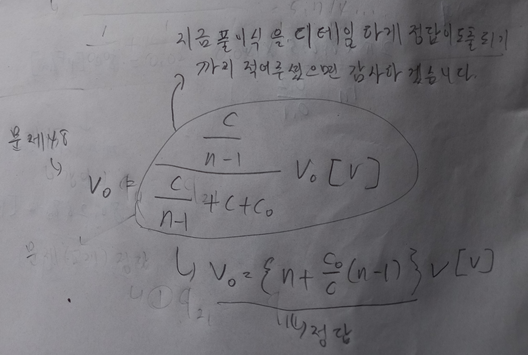 지금 풀이식을 디테일하게 정답이 도출되기
까지 적어주셨으면 감사하겠습니다.
문제48
V₀ = \frac{\frac{C}{n-1}}{\frac{C}{n-1}+C+C₀} V₀ [V]
↳ V₀ = {n + \frac{C₀}{C}(n-1)} V [V]
정답